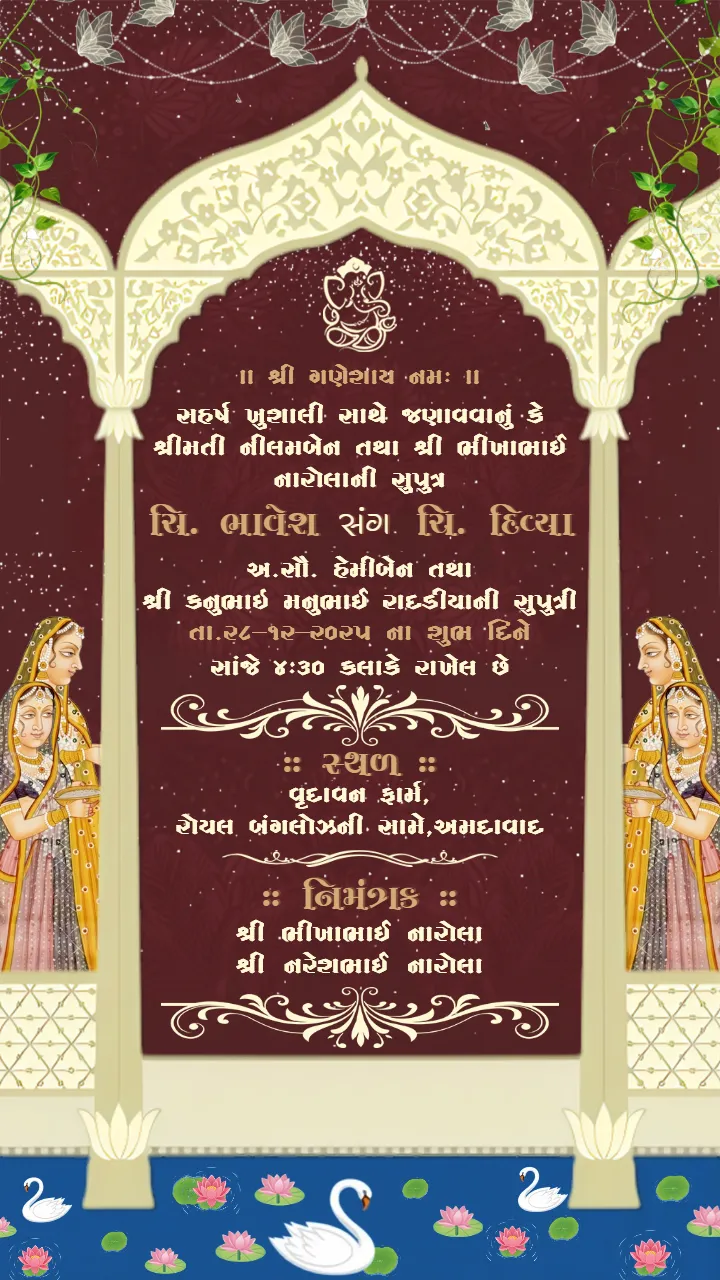 ॥ શ્રી ગણેશાય નમઃ ॥
સહર્ષ ખુશાલી સાથે જણાવવાનું કે
શ્રીમતી નીલમબેન તથા શ્રી ભીખાભાઈ
નારોલાની સુપુત્ર
ચિ. ભાવેશ સંગ ચિ. દિવ્યા
અ.સૌ. હેમીબેન તથા
શ્રી કનુભાઇ મનુભાઈ રાદડીયાની સુપુત્રી
તા.૨૮-૧૨-૨૦૨૫ ના શુભ દિને
સાંજે ૪:૩૦ કલાકે રાખેલ છે
:: સ્થળ ::
વૃંદાવન ફાર્મ,
રોયલ બંગલોઝની સામે,અમદાવાદ
:: નિમંત્રક ::
શ્રી ભીખાભાઈ નારોલા
શ્રી નરેશભાઈ નારોલા